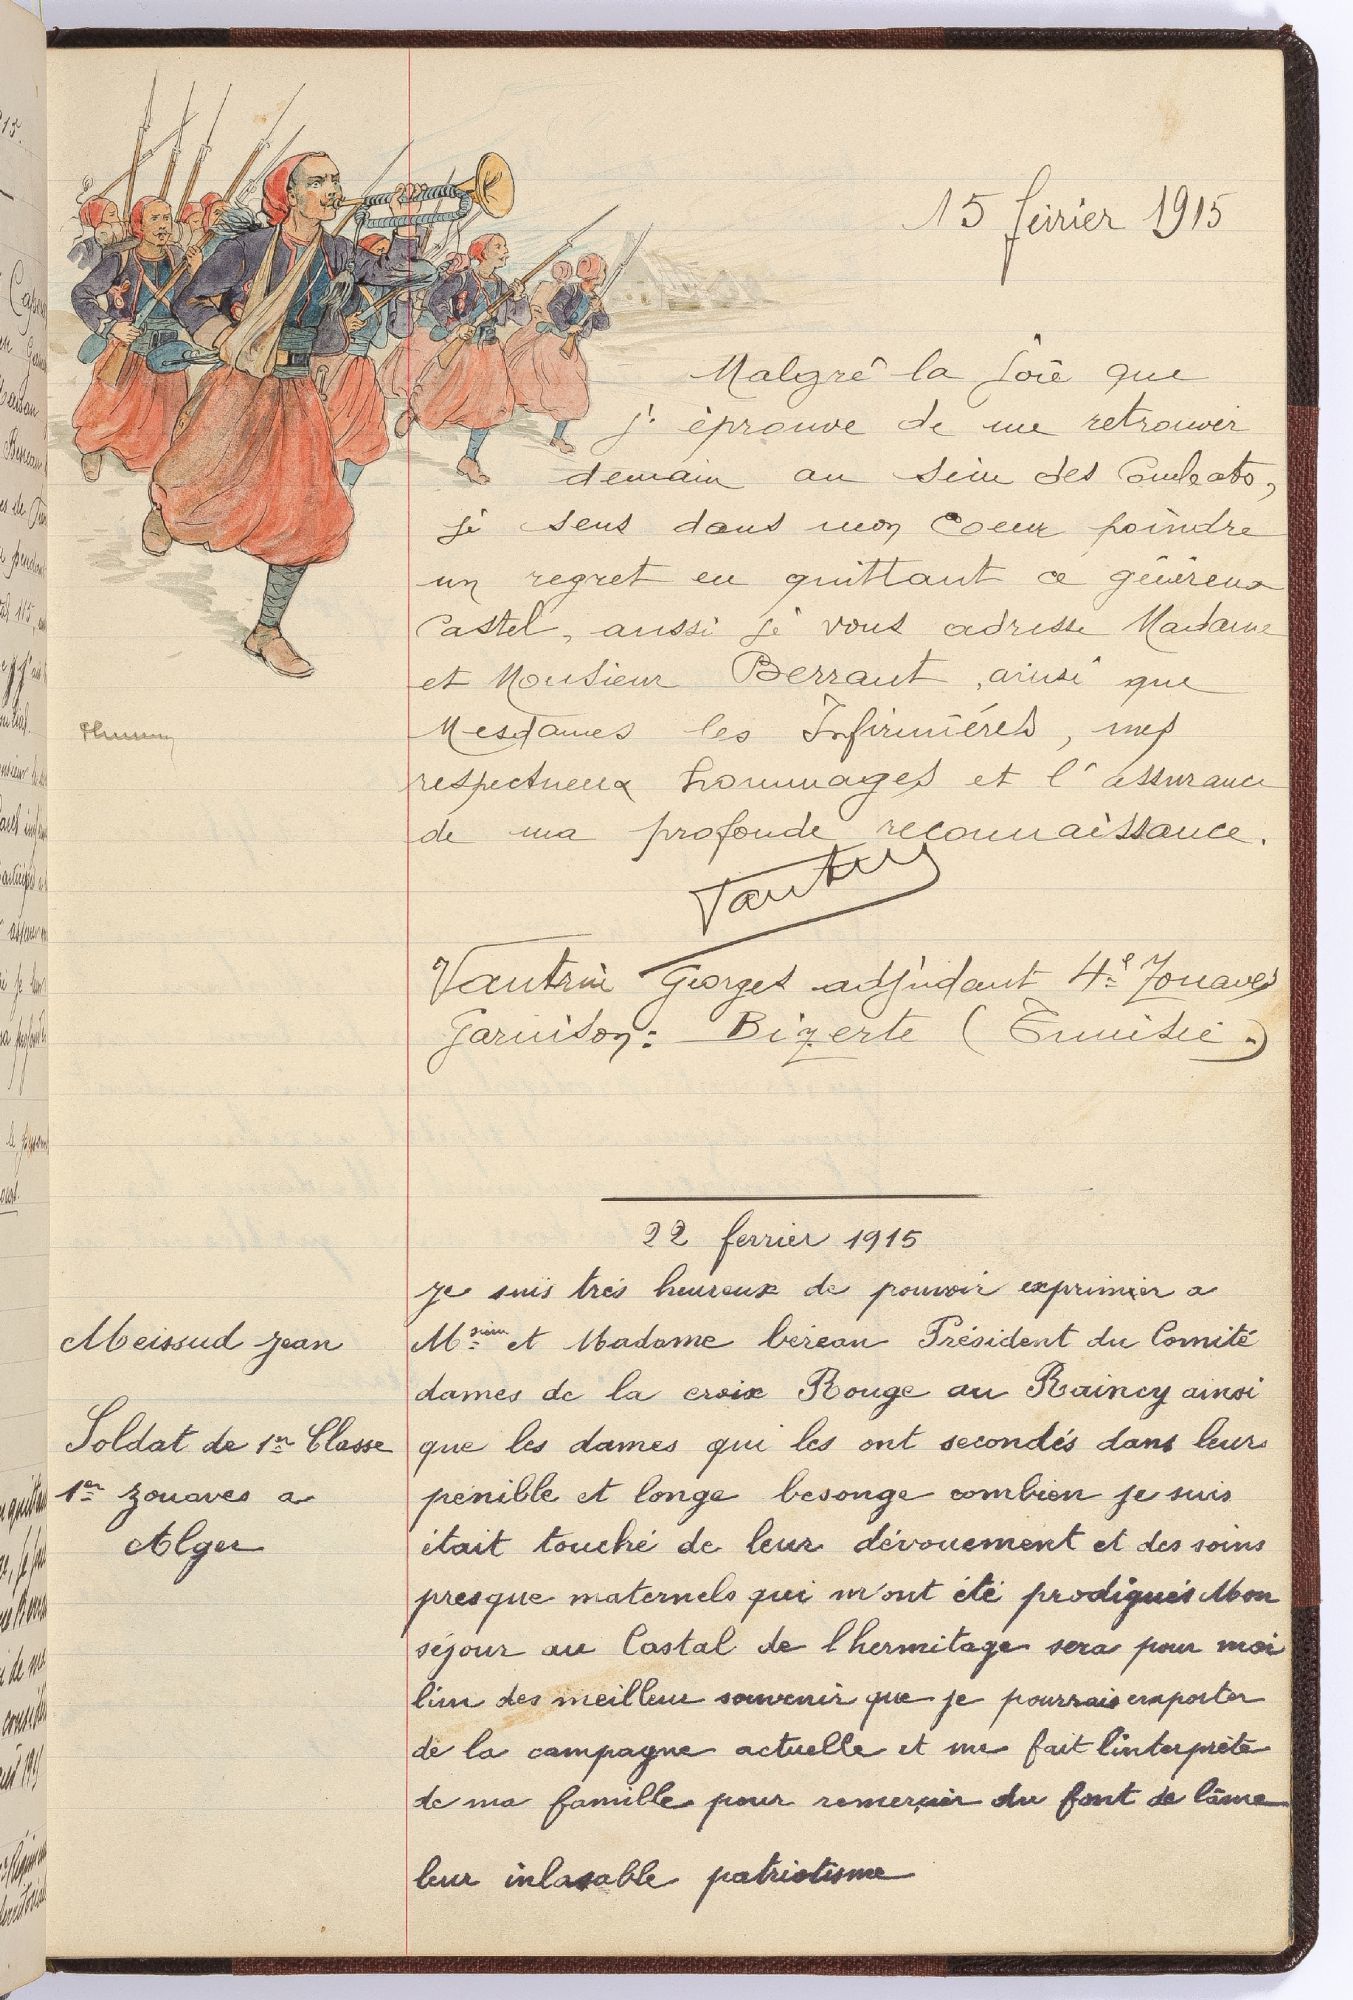 15 février 1915
Malgré la joie que
j'éprouve de me retrouver
demain au sein des Combats,
je sens dans mon Coeur poindre
un regret en quittant ce généreux
Castel, aussi je vous adresse Madame
et Monsieur Berraut, ainsi que
Mesdames les Infirmières, mes
respectueux hommages et l'assurance
de ma profonde reconnaissance.
Vautrin
Vautrin Georges adjudant 4e Zouaves
Garnison : Bizerte (Tunisie.)
22 ferrier 1915
Meissud jean
Soldat de 1re Classe
1er zouaves a
Alger
je suis très heureux de pouvoir exprimer a
Msieur et Madame béreau Président du Comité
dames de la croix Rouge au Raincy ainsi
que les dames qui les ont secondés dans leur
penible et longe besonge combien je suis
était touché de leur dévouement et des soins
presque maternels qui m'ont été prodigués Mon
séjour au Castal de l'hermitage sera pour moi
l'un des meilleur souvenir que je pourrais emporter
de la campagne actuelle et me fait l'interprète
de ma famille pour remercier du font de l'âme
leur inlasable patriotisme